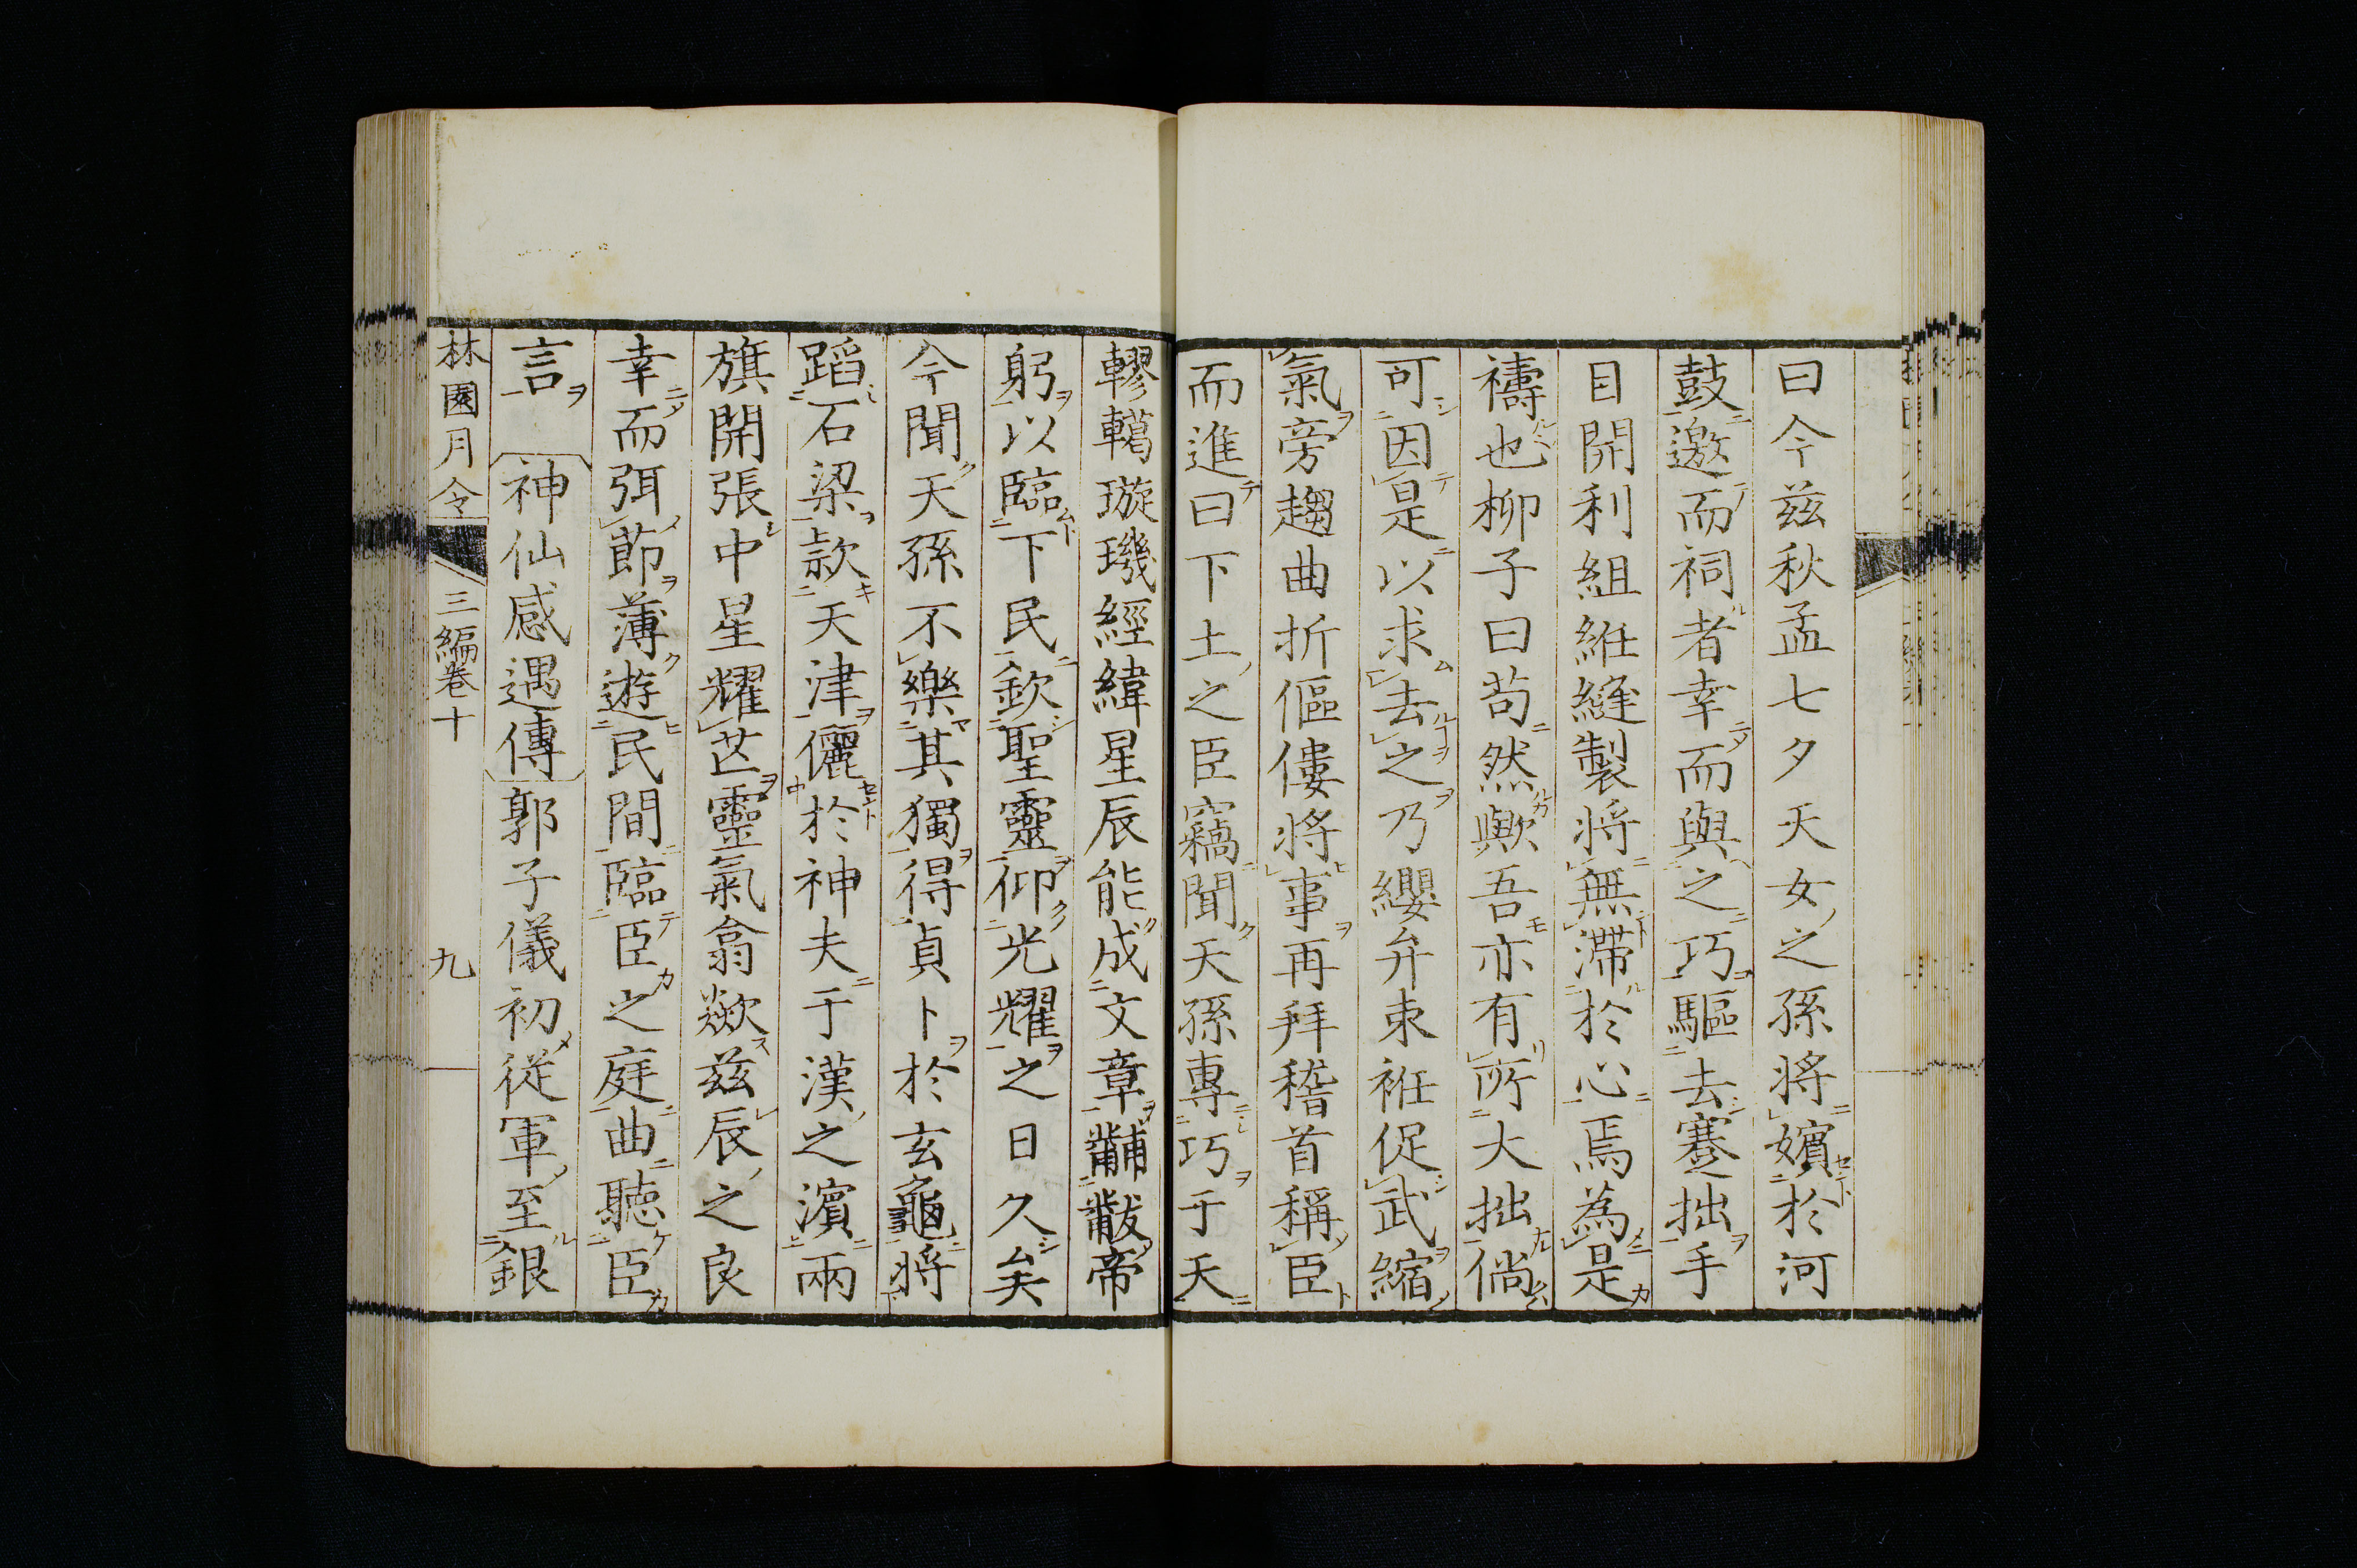 曰今兹秋孟七夕天女之孫將嬪於河
鼓邀而祠者幸而與之巧驅去蹇拙手
目開利組紝縫製將無滯於心焉為是
禱也柳子曰苟然歟吾亦有所大拙倘
可因是以求去之乃纓弁束衽促武縮
氣旁趨曲折傴僂將事再拜稽首稱臣
而進曰下土之臣竊聞天孫專巧于天
轇轕璇璣經緯星辰能成文章黼黻帝
躬以臨下民欽聖靈仰光耀之日久矣
今聞天孫不樂其獨得貞卜於玄龜將
蹈石梁款天津儷於神夫于漢之濱兩
旗開張中星耀芒靈氣翕歘兹辰之良
幸而弭節薄遊民間臨臣之庭曲聽臣
言　神仙感遇傳　郭子儀初從軍至銀
林園月令　三編卷十　九